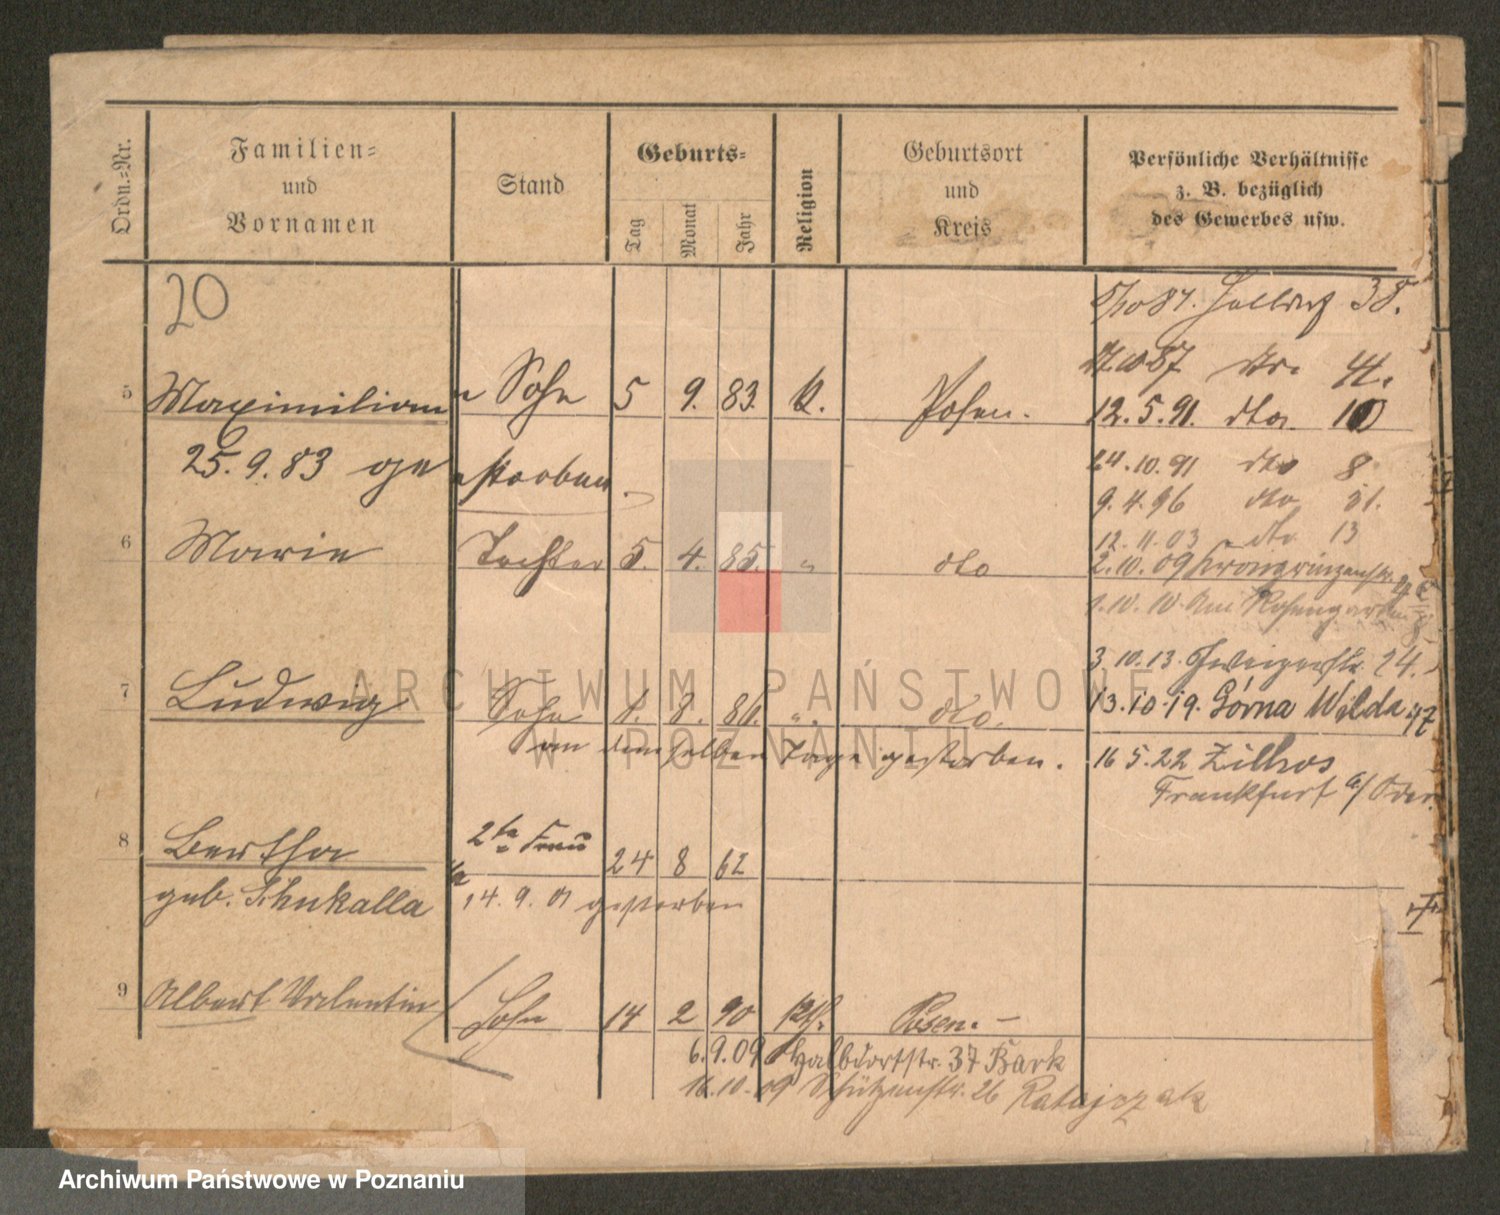 Ordn.-Nr.
Familien-
und
Vornamen
Stand
Geburts-
Tag
Monat
Jahr
Religion
Geburtsort
und
Kreis
Persönliche Verhältnisse
z. B. bezüglich
des Gewerbes usw.
20
5 Maximilian Sohn 5 9. 83. k. Posen.
25. 9. 83 gestorben
6 Marie Tochter 5. 4. 85. " dto
7 Ludwig Sohn 1. 8. 86. " dto.
an demselben Tage gestorben.
8 Bertha 2te Frau 24 8 62
geb. 14. 9. 01 gestorben
9 Albert Valentin Sohn 14 2 90 kth. Posen. -
6. 9. 09 Halbdorfstr. 37 Bark
16. 10. 09 Schützenstr. 26 Ratajczak
5/10 87. 38.
87 44.
12. 5. 91. dto. 10
24. 10. 91 dto 8
9. 4. 96 dto 31.
12. 11. 03 dto 13
2. 10. 09 Kronprinzenstr.
1. 10. 10. Am Rosengarten
3. 10. 13. 24.
13. 10. 19. Górna Wilda 47
16 5. 22
Frankfurt a/ Oder.
ARCHIWUM PAŃSTWOWE
W POZNANIU
Archiwum Państwowe w Poznaniu